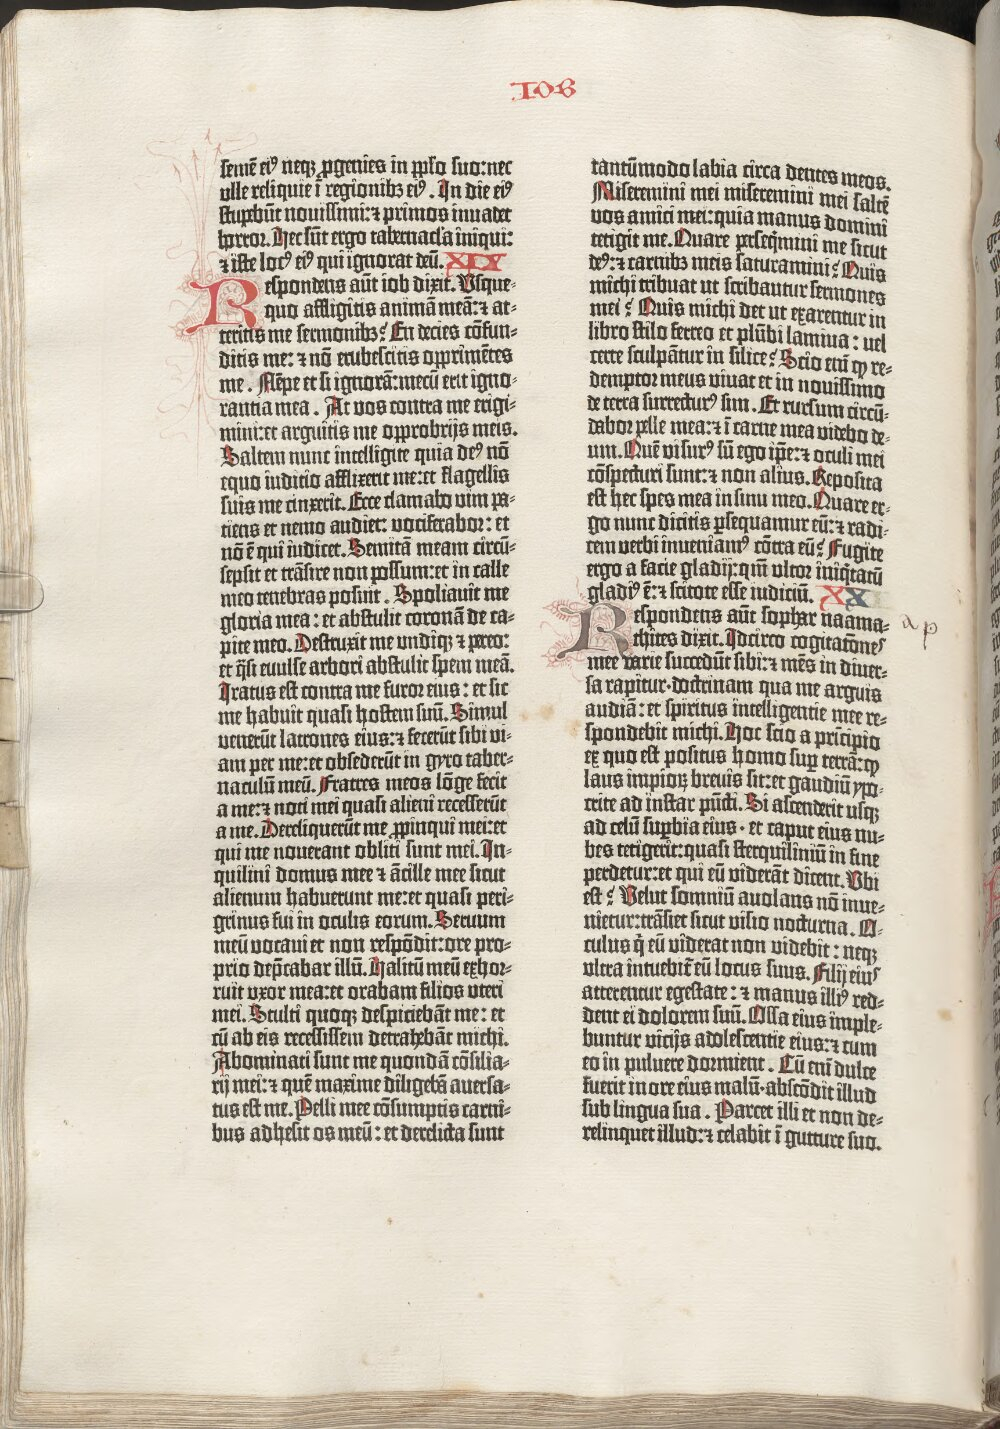 IOB
semē eiꝰ neqꝫ ꝓgenies in pp̄lo suo: nec
ulle reliquie ī regionibꝫ eiꝰ. In die eiꝰ
stupebūt nouissimi: ⁊ primos inuadet
horror. Hec sūt ergo tabernacl̄a iniqui:
⁊ iste locꝰ eiꝰ qui ignorat deū. XIX
Respondens aūt iob dixit. Usque-
quo affligitis animā meā: ⁊ at-
teritis me sermonibꝫ? En decies cōfun-
ditis me: ⁊ nō erubescitis opprimētes
me. Nēpe et si ignoraui: mecū erit igno-
rantia mea. At vos contra me erigi-
mini: et arguitis me opprobrijs meis.
Saltem nunc intelligite quia deꝰ nō
equo iudicio afflixerit me: et flagellis
suis me cinxerit. Ecce clamabo vim pa-
tiens et nemo audiet: vociferabor: et
nō ē qui iudicet. Semitā meam circū-
sepsit et trāsire non possum: et in calle
meo tenebras posuit. Spoliauit me
gloria mea: et abstulit coronā de ca-
pite meo. Destruxit me undiqꝫ ⁊ pereo:
et q̄si euulse arbori abstulit spem meā.
Iratus est contra me furor eius: et sic
me habuit quasi hostem suū. Simul
venerūt latrones eius: ⁊ fecerūt sibi vi-
am per me: et obsederūt in gyro taber-
naculū meū. Fratres meos lōge fecit
a me: ⁊ noti mei quasi alieni recesserūt
a me. Dereliquerūt me ꝓpinqui mei: et
qui me nouerant obliti sunt mei. In-
quilini domus mee ⁊ ācille mee sicut
alienum habuerunt me: et quasi peri-
grinus fui in oculis eorum. Seruum
meū vocaui et non respōdit: ore pro-
prio dep̄cabar illū. Halitū meū exhor-
ruit uxor mea: et orabam filios uteri
mei. Stulti quoqꝫ despiciebāt me: et
cū ab eis recessissem detrahebāt michi.
Abominati sunt me quondā cōsilia-
rij mei: ⁊ quē maxime diligebā auersa-
tus est me. Pelli mee cōsumptis carni-
bus adhesit os meū: et derelicta sunt
tantūmodo labia circa dentes meos.
Miseremini mei miseremini mei saltē
vos amici mei: quia manus domini
tetigit me. Quare perseq̄mini me sicut
deꝰ: ⁊ carnibꝫ meis saturamini? Quis
michi tribuat ut scribantur sermones
mei? Quis michi det ut exarentur in
libro stilo ferreo et plūbi lamina: vel
certe sculpātur in silice? Scio eni ꝙ re-
demptor meus vivat et in novissimo
de terra surrecturꝰ sim. Et rursum circū-
dabor pelle mea: ⁊ ī carne mea videbo de-
um. Quē visurꝰ sū ego ip̄e: ⁊ oculi mei
cōspecturi sunt: ⁊ non alius. Reposita
est hec spes mea in sinu meo. Quare er-
go nunc dicitis ꝑsequamur eū: ⁊ radi-
cem verbi inueniamꝰ cōtra eū? Fugite
ergo a facie gladij: qm̄ ultor iniq̄tatū
gladiꝰ ē: ⁊ scitote esse iudiciū. XX
Respondens aūt sophar naama-
thites dixit. Idcirco cogitatōnes
mee varie succedūt sibi: ⁊ mēs in diver-
sa rapitur. doctrinam qua me arguis
audiā: et spiritus intelligentie mee re-
spondebit michi. Hoc scio a principio
ex quo est positus homo sup terrā: ꝙ
laus impioꝝ brevis sit: et gaudiū ypo-
crite ad instar pūcti. Si ascenderit usqꝫ
ad celū supbia eius. et caput eius nu-
bes tetigerit: quasi sterquiliniū in fine
perdetur: et qui eū viderāt dicent. Ubi
est? Velut somniū avolans nō inve-
nietur: trāsiet sicut visio nocturna. O-
culus q̄ eū viderat non videbit: neqꝫ
ultra intuebit̄ eū locus suus. Filij eius
atterentur egestate: ⁊ manus illiꝰ red-
dent ei dolorem suū. Ossa eius imple-
buntur vicijs adolescentie eius: ⁊ cum
eo in pulvere dormient. Cū eni dulce
fuerit in ore eius malū. abscōdit illud
sub lingua sua. Parcet illi et non de-
relinquet illud: ⁊ celabit ī gutture suo.